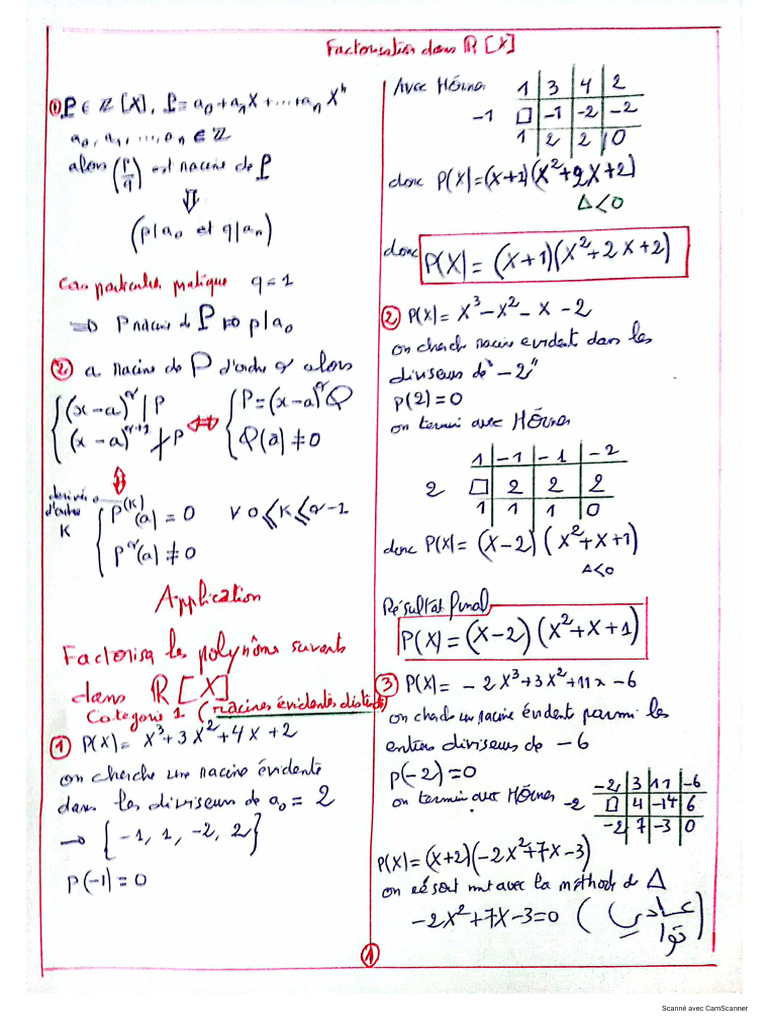 Factorisation dans ℝ[X]
① P ∈ ℤ[X], P = a₀ + a₁X + ... + aₙXⁿ
a₀, a₁, ..., aₙ ∈ ℤ
alors (p/q) est racine de P
⇓
(p|a₀ et q|aₙ)
Cas particulier pratique q = 1
⇒ P racine de P ⇒ p|a₀
② a racine de P d'ordre r alors
{ (x-a)^r | P ⇔ { P = (x-a)^r Q
(x-a)^{r+1} ∤ P Q(a) ≠ 0
⇕
dérivée
d'ordre
K
{ P^(K)(a) = 0 ∀ 0 ≤ K ≤ r-1
P^r(a) ≠ 0
Application
Factoriser les polynôme suivants
dans ℝ[X]
Categorie 1 (racines évidentes distinctes)
① P(X) = X³ + 3X² + 4X + 2
on cherche une racine évidente
dans les diviseurs de a₀ = 2
→ {-1, 1, -2, 2}
P(-1) = 0
Avec Hörner 1 | 3 | 4 | 2
-1 □ | -1 | -2 | -2
1 | 2 | 2 | 0
donc P(X) = (X+1)(X²+2X+2)
Δ<0
donc P(X) = (X+1)(X²+2X+2)
② P(X) = X³ - X² - X - 2
on cherch racine evident dans les
diviseurs de "-2"
P(2) = 0
on termin avec Hörner
1 | -1 | -1 | -2
2 □ | 2 | 2 | 2
1 | 1 | 1 | 0
donc P(X) = (X-2)(X²+X+1)
Δ<0
Résultat final
P(X) = (X-2)(X²+X+1)
③ P(X) = -2X³ + 3X² + 11x - 6
on cherch un racine évident parmi les
entiers diviseurs de -6
P(-2) = 0
on termin avec Hörner
-2 | 3 | 11 | -6
-2 □ | 4 | -14 | 6
-2 | 7 | -3 | 0
P(X) = (X+2)(-2X²+7X-3)
on résout mt avec la méthode de Δ
-2X²+7X-3=0 (عادي
توا)
①
Scanné avec CamScanner